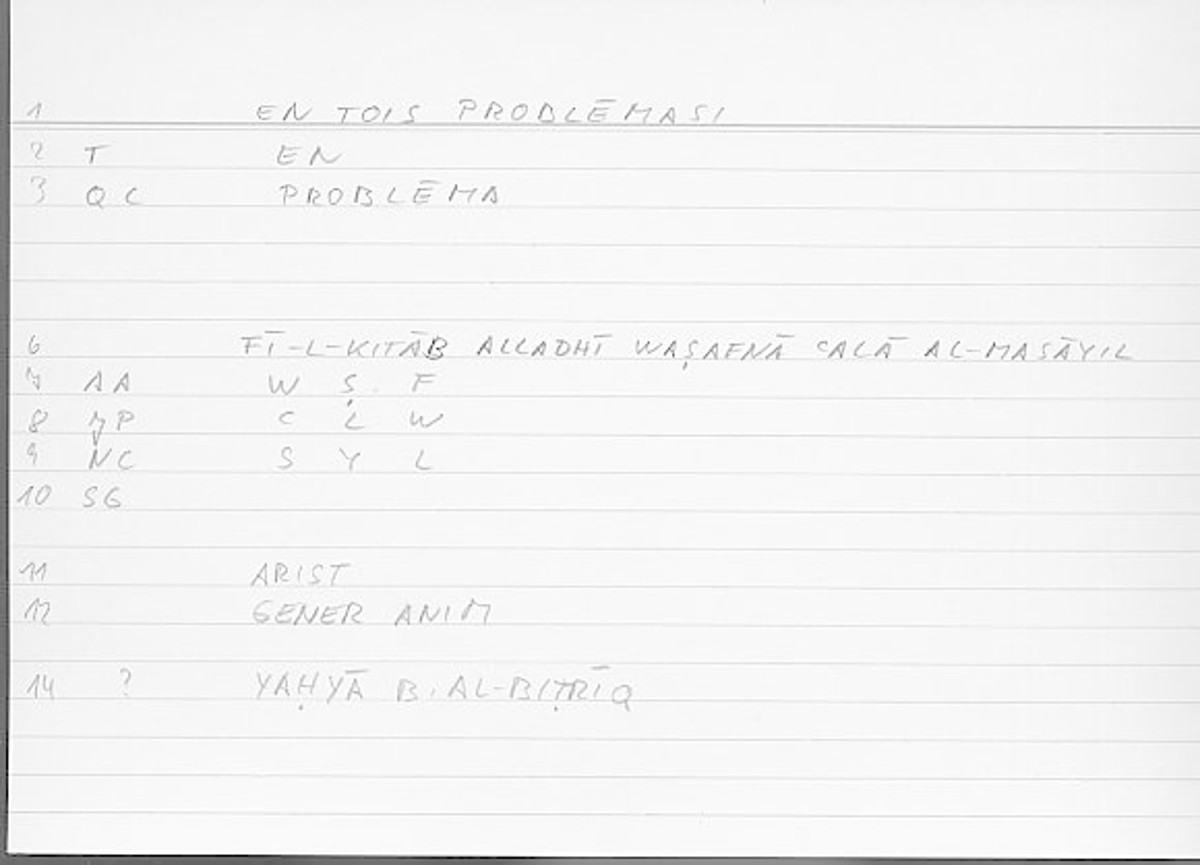 1 EN TOIS PROBLĒMASI
2 T EN
3 QC PROBLĒMA
6 FĪ-L-KITĀB ALLADHĪ WAṢAFNĀ ʿALĀ AL-MASĀYIL
7 AA W Ṣ F
8 JP ʿ L W
9 NC S Y L
10 SG
11 ARIST
12 GENER ANIM
14 ? YAḤYĀ B. AL-BIṬRĪQ